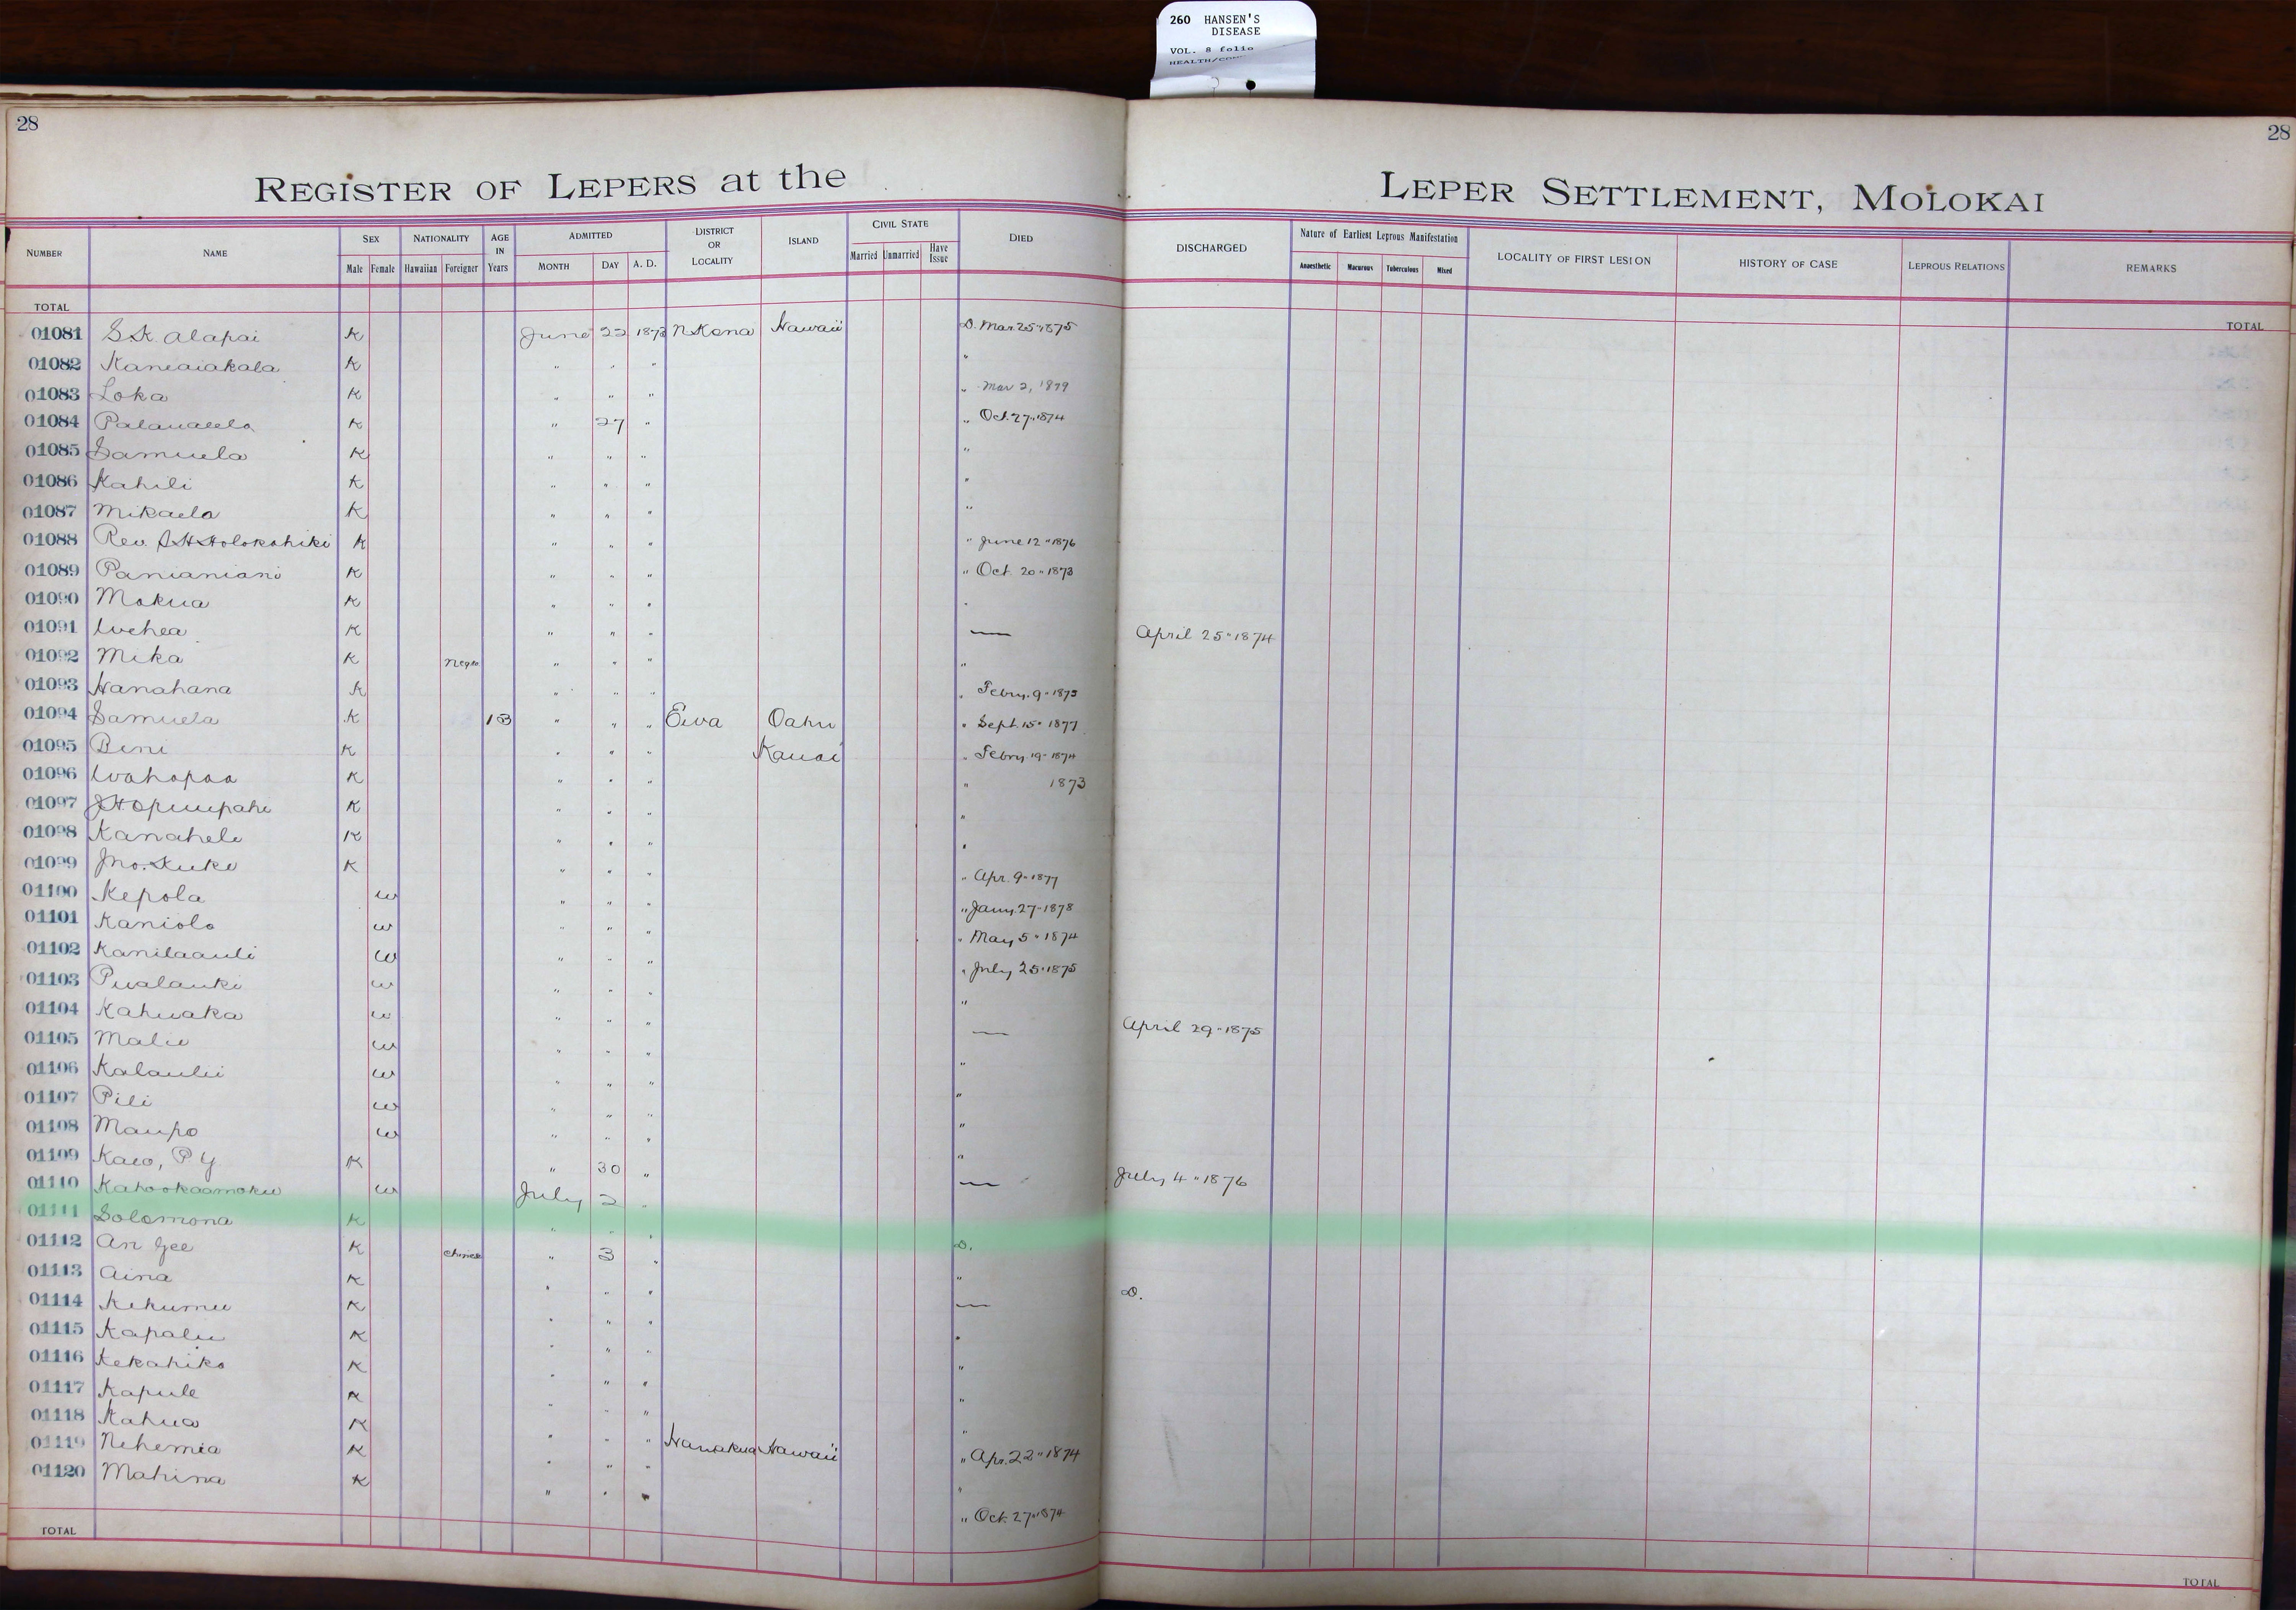 260 HANSEN'S
DISEASE
VOL. 8 folio
28
28
REGISTER OF LEPERS at the LEPER SETTLEMENT, MOLOKAI
NUMBER NAME SEX Male Female NATIONALITY Hawaiian Foreigner AGE IN Years ADMITTED MONTH DAY A. D. DISTRICT OR LOCALITY ISLAND CIVIL STATE Married Unmarried Have Issue DIED DISCHARGED Nature of Earliest Leprous Manifestation Anaesthetic Macurous Tuberculous Mixed LOCALITY OF FIRST LESION HISTORY OF CASE LEPROUS RELATIONS REMARKS
TOTAL TOTAL
01081 S.K. Alapai K June 22 1873 N Kona Hawaii D. Mar. 25 " 1875
01082 Kaneaiakala K " " " "
01083 Loka K " " " " Mar 2, 1879
01084 K " 27 " " Oct. 27 " 1874
01085 Samuela K " " " "
01086 Kahili K " " " "
01087 Mikaela K " " " "
01088 Rev. K " " " " June 12 " 1876
01089 Panianiani K " " " " Oct. 20 " 1873
01090 Mokua K " " " "
01091 K " " " — April 25 " 1874
01092 Mika K Negro " " " "
01093 Hanahana K " " " " Febry. 9 "
01094 Samuela K 13 " " " Ewa Oahu " Sept. 15 " 1877
01095 Beni K " " " Kauai " Febry 19 " 1874
01096 Wahapaa K " " " " 1873
01097 K " " " "
01098 Kanahele K " " " "
01099 Jno. K " " " " Apr. 9 " 1877
01100 Kepola W " " " " Jany. 27 " 1878
01101 Kaniolo W " " " " May 5 " 1874
01102 Kanilaauli W " " " " July 25 " 1875
01103 Pualauki W " " " "
01104 Kahuaka W " " " — April 29 " 1875
01105 Malie W " " " "
01106 Kalaulii W " " " "
01107 Pili W " " " "
01108 Maupo W " " " "
01109 Kaeo, P Y K " 30 " — July 4 " 1876
01110 Kahookaamoku W July 2 "
01111 Solomona K " " " D.
01112 An Gee K Chinese " 3 " "
01113 Aina K " " " — D.
01114 Kekumu K " " " "
01115 Kapalu K " " " "
01116 Kekahiko K " " " "
01117 Kapule K " " " "
01118 Kahua K " " "
01119 Nehemia K " " " Hamakua Hawaii " Apr. 22 " 1874
01120 Mahina K " " " " Oct. 27 " 1874
TOTAL TOTAL